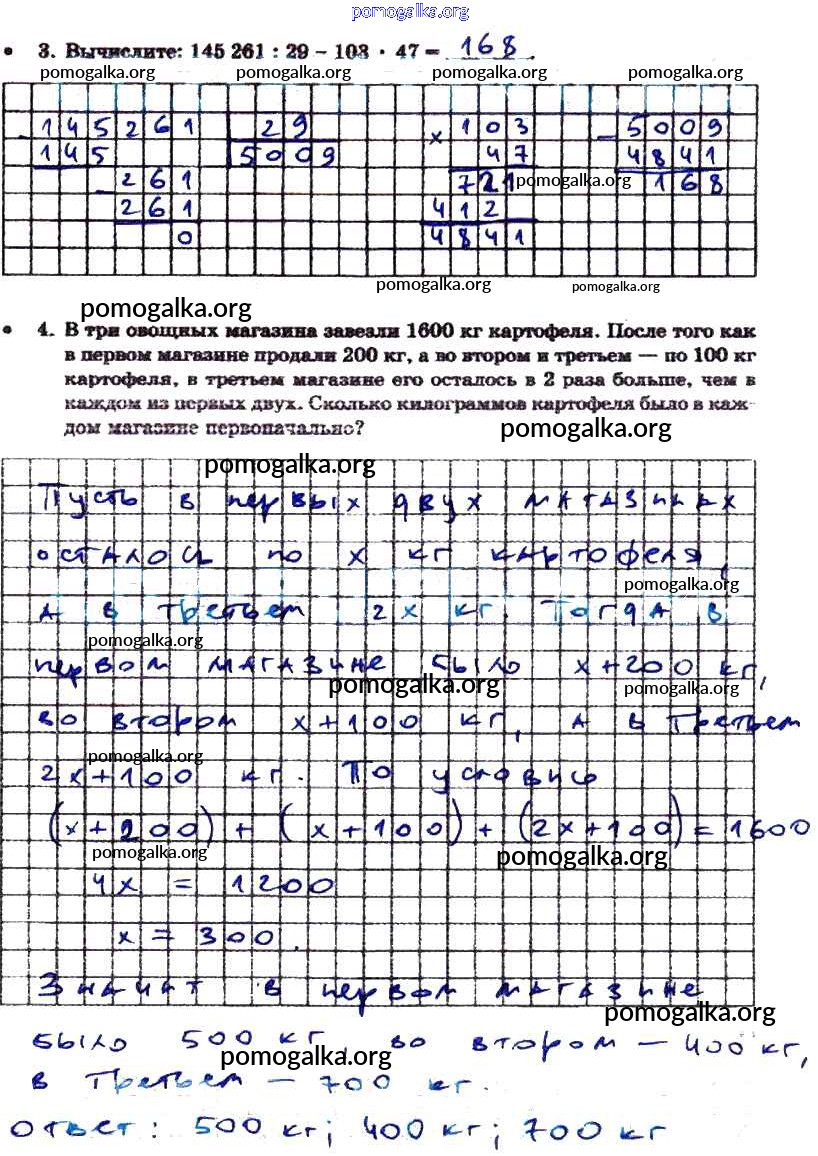 pomogalka.org
3. Вычислите: 145 261 : 29 – 103 · 47 = 168.
pomogalka.org pomogalka.org pomogalka.org pomogalka.org
– 145261 29 × 103 – 5009
145 5009 47 4841
– 261 721 pomogalka.org 168
261 412
0 4841
pomogalka.org pomogalka.org
pomogalka.org
4. В три овощных магазина завезли 1600 кг картофеля. После того как
в первом магазине продали 200 кг, а во втором и третьем — по 100 кг
картофеля, в третьем магазине его осталось в 2 раза больше, чем в
каждом из первых двух. Сколько килограммов картофеля было в каж-
дом магазине первоначально?
pomogalka.org
pomogalka.org
Пусть в первых двух магазинах
осталось по x кг картофеля,
pomogalka.org
а в третьем 2x кг. Тогда в
pomogalka.org
первом магазине было x+200 кг,
pomogalka.org pomogalka.org
во втором x+100 кг, а в третьем
pomogalka.org
2x+100 кг. По условию
(x+200) + (x+100) + (2x+100) = 1600
pomogalka.org pomogalka.org
4x = 1200
x = 300.
Значит в первом магазине
pomogalka.org
было 500 кг, во втором — 400 кг,
pomogalka.org
в третьем — 700 кг.
ответ: 500 кг; 400 кг; 700 кг